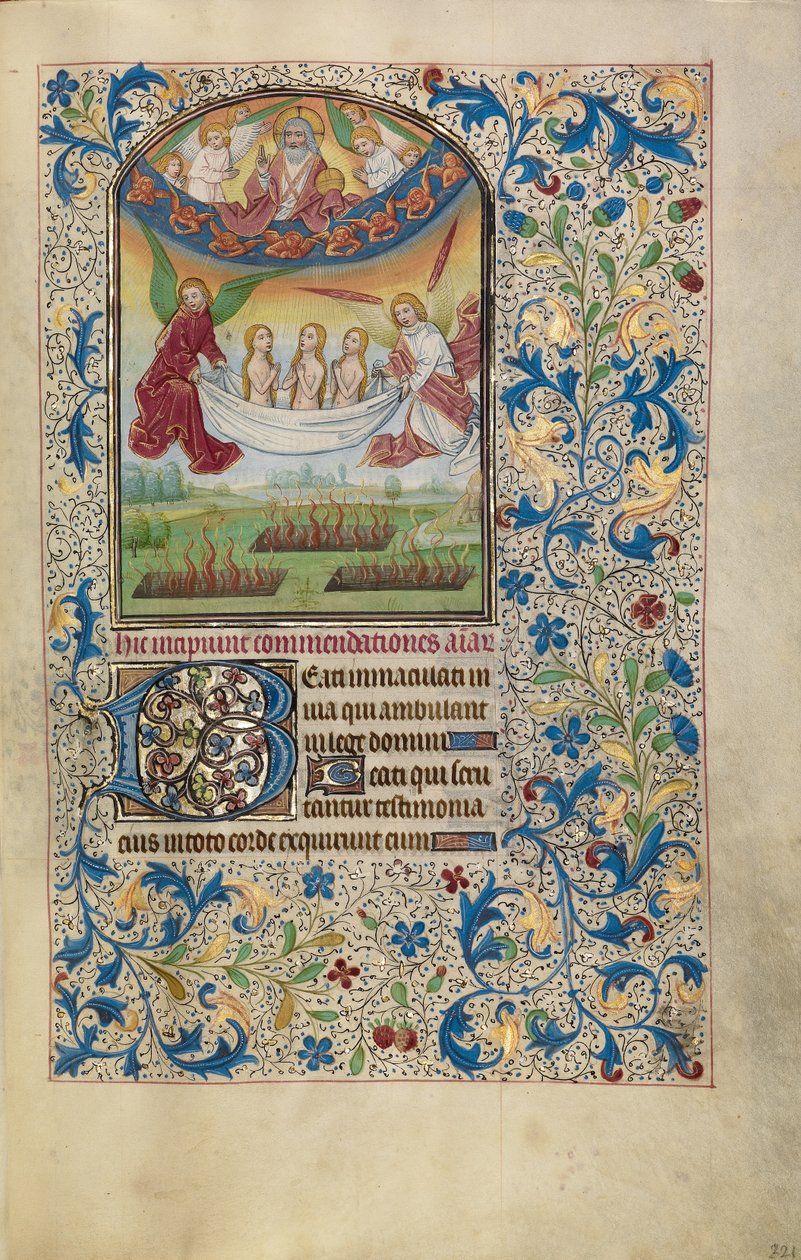 hic incipiunt commendationes aiar
Beati inmaculati in
uia qui ambulant
in lege domini
Beati qui scru
tantur testimonia
eius in toto corde exquirunt eum
221